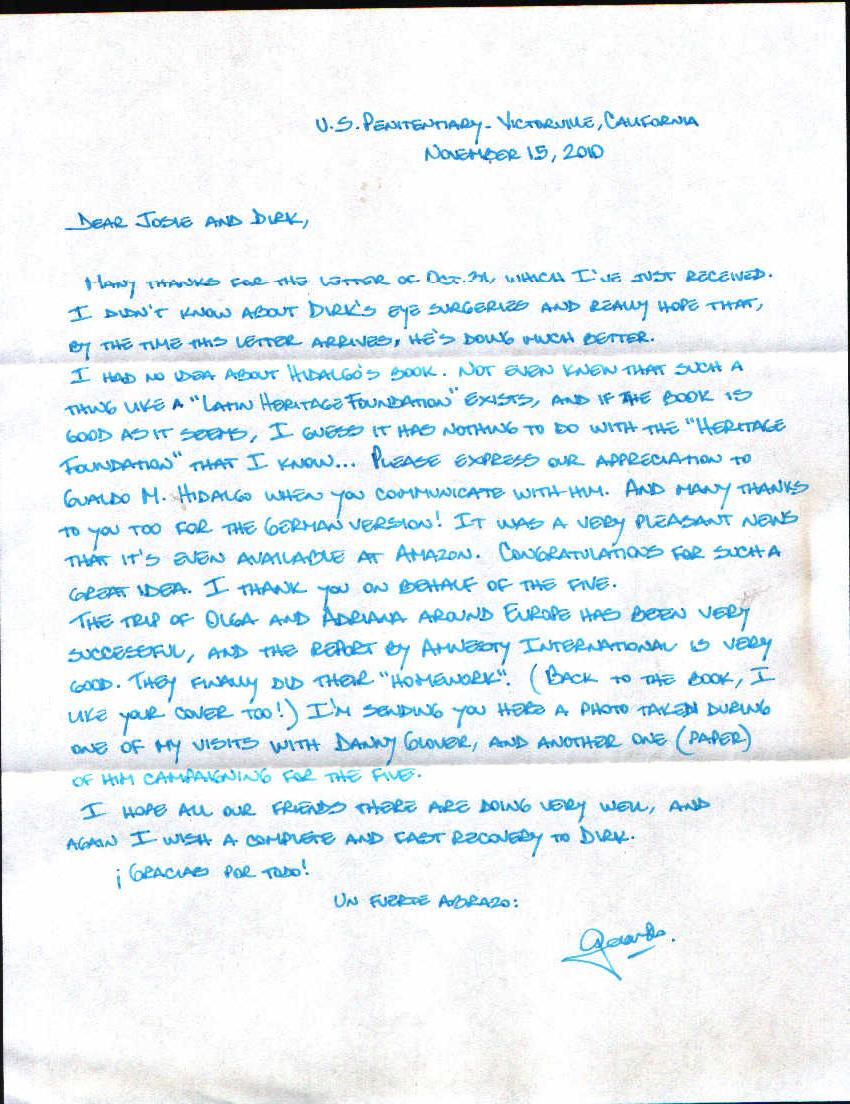 U.S. PENITENTIARY - VICTORVILLE, CALIFORNIA
NOVEMBER 15, 2010
DEAR JOSIE AND DIRK,
MANY THANKS FOR THE LETTER OF OCT. 31, WHICH I'VE JUST RECEIVED.
I DIDN'T KNOW ABOUT DIRK'S EYE SURGERIES AND REALLY HOPE THAT,
BY THE TIME THIS LETTER ARRIVES, HE'S DOING MUCH BETTER.
I HAD NO IDEA ABOUT HIDALGO'S BOOK. NOT EVEN KNEW THAT SUCH A
THING LIKE A "LATIN HERITAGE FOUNDATION" EXISTS, AND IF THE BOOK IS
GOOD AS IT SEEMS, I GUESS IT HAS NOTHING TO DO WITH THE "HERITAGE
FOUNDATION" THAT I KNOW... PLEASE EXPRESS OUR APPRECIATION TO
GUALDO M. HIDALGO WHEN YOU COMMUNICATE WITH HIM. AND MANY THANKS
TO YOU TOO FOR THE GERMAN VERSION! IT WAS A VERY PLEASANT NEWS
THAT IT'S EVEN AVAILABLE AT AMAZON. CONGRATULATIONS FOR SUCH A
GREAT IDEA. I THANK YOU ON BEHALF OF THE FIVE.
THE TRIP OF OLGA AND ADRIANA AROUND EUROPE HAS BEEN VERY
SUCCESSFUL, AND THE REPORT BY AMNESTY INTERNATIONAL IS VERY
GOOD. THEY FINALLY DID THEIR "HOMEWORK". (BACK TO THE BOOK, I
LIKE YOUR COVER TOO!) I'M SENDING YOU HERE A PHOTO TAKEN DURING
ONE OF MY VISITS WITH DANNY GLOVER, AND ANOTHER ONE (PAPER)
OF HIM CAMPAIGNING FOR THE FIVE.
I HOPE ALL OUR FRIENDS THERE ARE DOING VERY WELL, AND
AGAIN I WISH A COMPLETE AND FAST RECOVERY TO DIRK.
¡GRACIAS POR TODO!
UN FUERTE ABRAZO:
Gerardo.